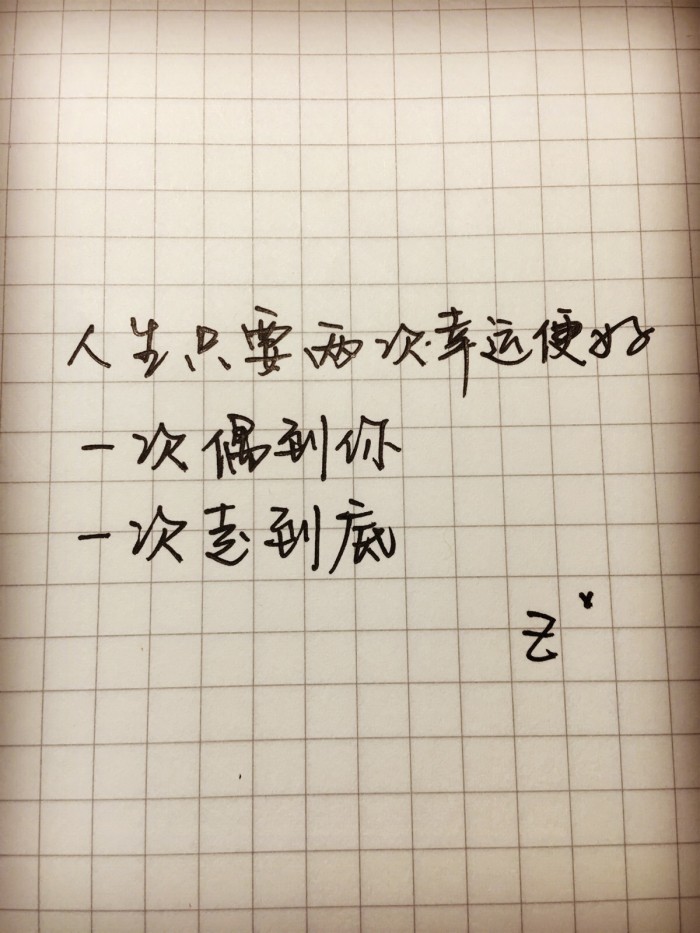 人生只要两次幸运便好
一次偶到你
一次走到底
Z x